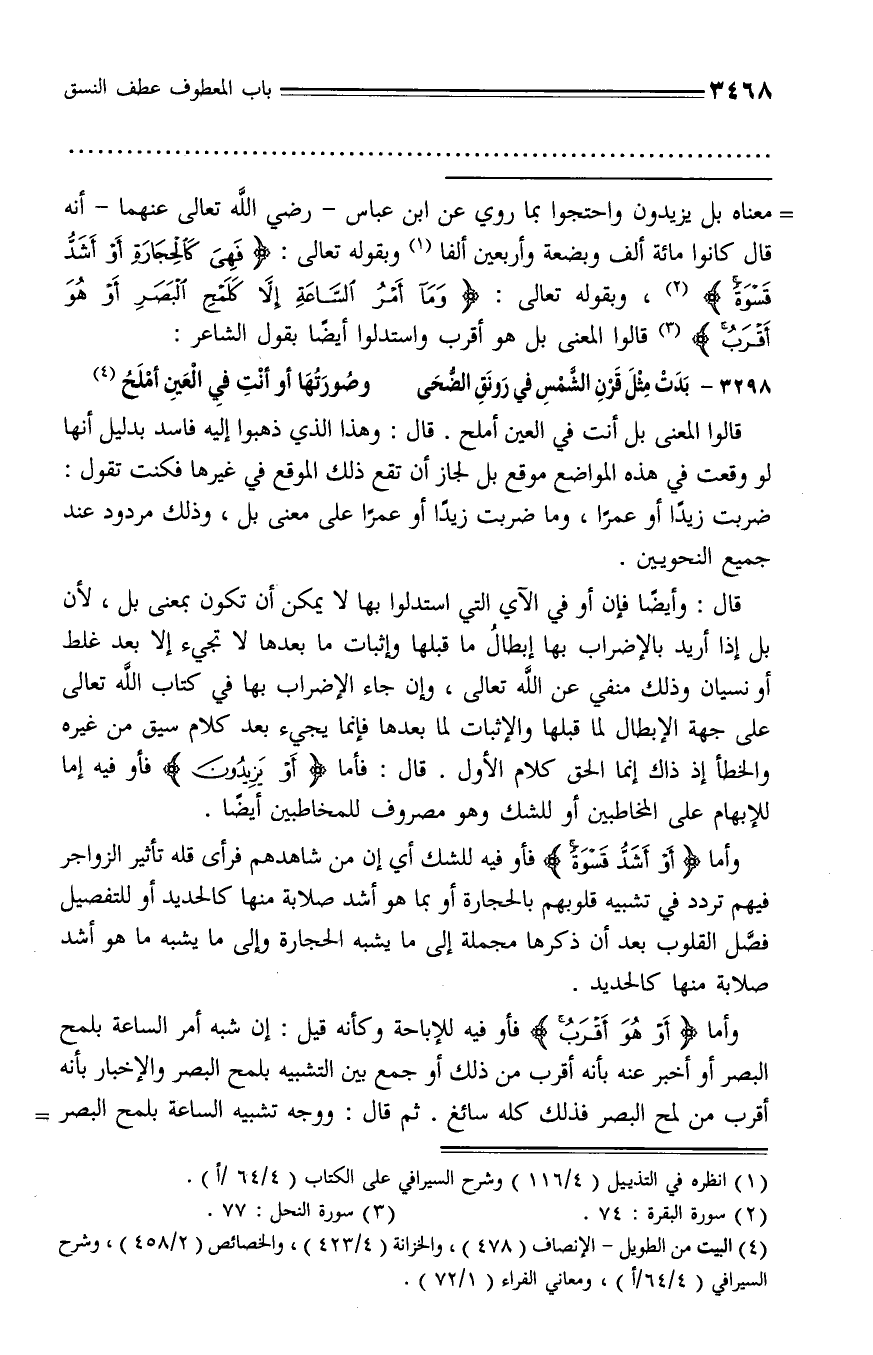 ٣٤٦٨ باب المعطوف عطف النسق
= معناه بل يزيدون واحتجوا بما روي عن ابن عباس - رضي اللَّه تعالى عنهما - أنه
قال كانوا مائة ألف وبضعة وأربعين ألفا (١) وبقوله تعالى : ﴿ فَهِىَ كَٱلْحِجَارَةِ أَوْ أَشَدُّ
قَسْوَةً ﴾ (٢) ، وبقوله تعالى : ﴿ وَمَآ أَمْرُ ٱلسَّاعَةِ إِلَّا كَلَمْحِ ٱلْبَصَرِ أَوْ هُوَ
أَقْرَبُ ﴾ (٣) قالوا المعنى بل هو أقرب واستدلوا أيضًا بقول الشاعر :
٣٢٩٨ - بَدَتْ مِثْلَ قَرْنِ الشَّمْسِ في رَونَقِ الضُّحَى وصُورَتُهَا أو أنْتِ فِي الْعَينِ أمْلَحُ (٤)
قالوا المعنى بل أنت في العين أملح . قال : وهذا الذي ذهبوا إليه فاسد بدليل أنها
لو وقعت في هذه المواضع موقع بل لجاز أن تقع ذلك الموقع في غيرها فكنت تقول :
ضربت زيدًا أو عمرًا ، وما ضربت زيدًا أو عمرًا على معنى بل ، وذلك مردود عند
جميع النحويين .
قال : وأيضًا فإن أو في الآي التي استدلوا بها لا يمكن أن تكون بمعنى بل ، لأن
بل إذا أريد بالإضراب بها إبطالُ ما قبلها وإثبات ما بعدها لا تجيء إلا بعد غلط
أو نسيان وذلك منفي عن اللَّه تعالى ، وإن جاء الإضراب بها في كتاب اللَّه تعالى
على جهة الإبطال لما قبلها والإثبات لما بعدها فإنما يجيء بعد كلام سيق من غيره
والخطأ إذ ذاك إنما الحق كلام الأول . قال : فأما ﴿ أَوْ يَزِيدُونَ ﴾ فأو فيه إما
للإبهام على المخاطبين أو للشك وهو مصروف للمخاطبين أيضًا .
وأما ﴿ أَوْ أَشَدُّ قَسْوَةً ﴾ فأو فيه للشك أي إن من شاهدهم فرأى قله تأثير الزواجر
فيهم تردد في تشبيه قلوبهم بالحجارة أو بما هو أشد صلابة منها كالحديد أو للتفصيل
فصَّل القلوب بعد أن ذكرها مجملة إلى ما يشبه الحجارة وإلى ما يشبه ما هو أشد
صلابة منها كالحديد .
وأما ﴿ أَوْ هُوَ أَقْرَبُ ﴾ فأو فيه للإباحة وكأنه قيل : إن شبه أمر الساعة بلمح
البصر أو أخبر عنه بأنه أقرب من ذلك أو جمع بين التشبيه بلمح البصر والإخبار بأنه
أقرب من لمح البصر فذلك كله سائغ . ثم قال : ووجه تشبيه الساعة بلمح البصر =
(١) انظره في التذييل ( ١١٦/٤ ) وشرح السيرافي على الكتاب ( ٦٤/٤ /أ ) .
(٢) سورة البقرة : ٧٤ . (٣) سورة النحل : ٧٧ .
(٤) البيت من الطويل - الإنصاف ( ٤٧٨ ) ، والخزانة ( ٤٢٣/٤ ) ، والخصائص ( ٤٥٨/٢ ) ، وشرح
السيرافي ( ٦٤/٤/أ ) ، ومعاني الفراء ( ٧٢/١ ) .